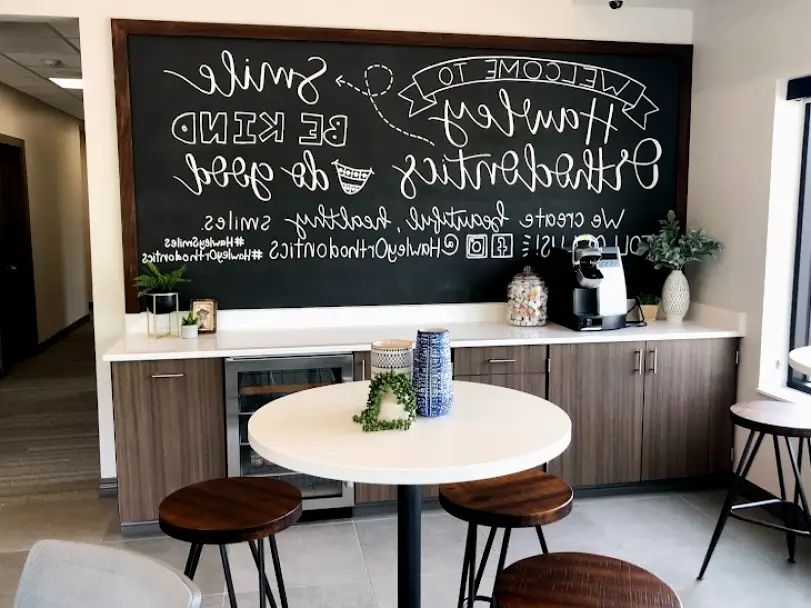 WELCOME TO
Hawley
Orthodontics
We create beautiful, healthy smiles.
FOLLOW US! @HawleyOrthodontics
Smile
BE KIND
do good
#HawleySmiles
#HawleyOrthodontics